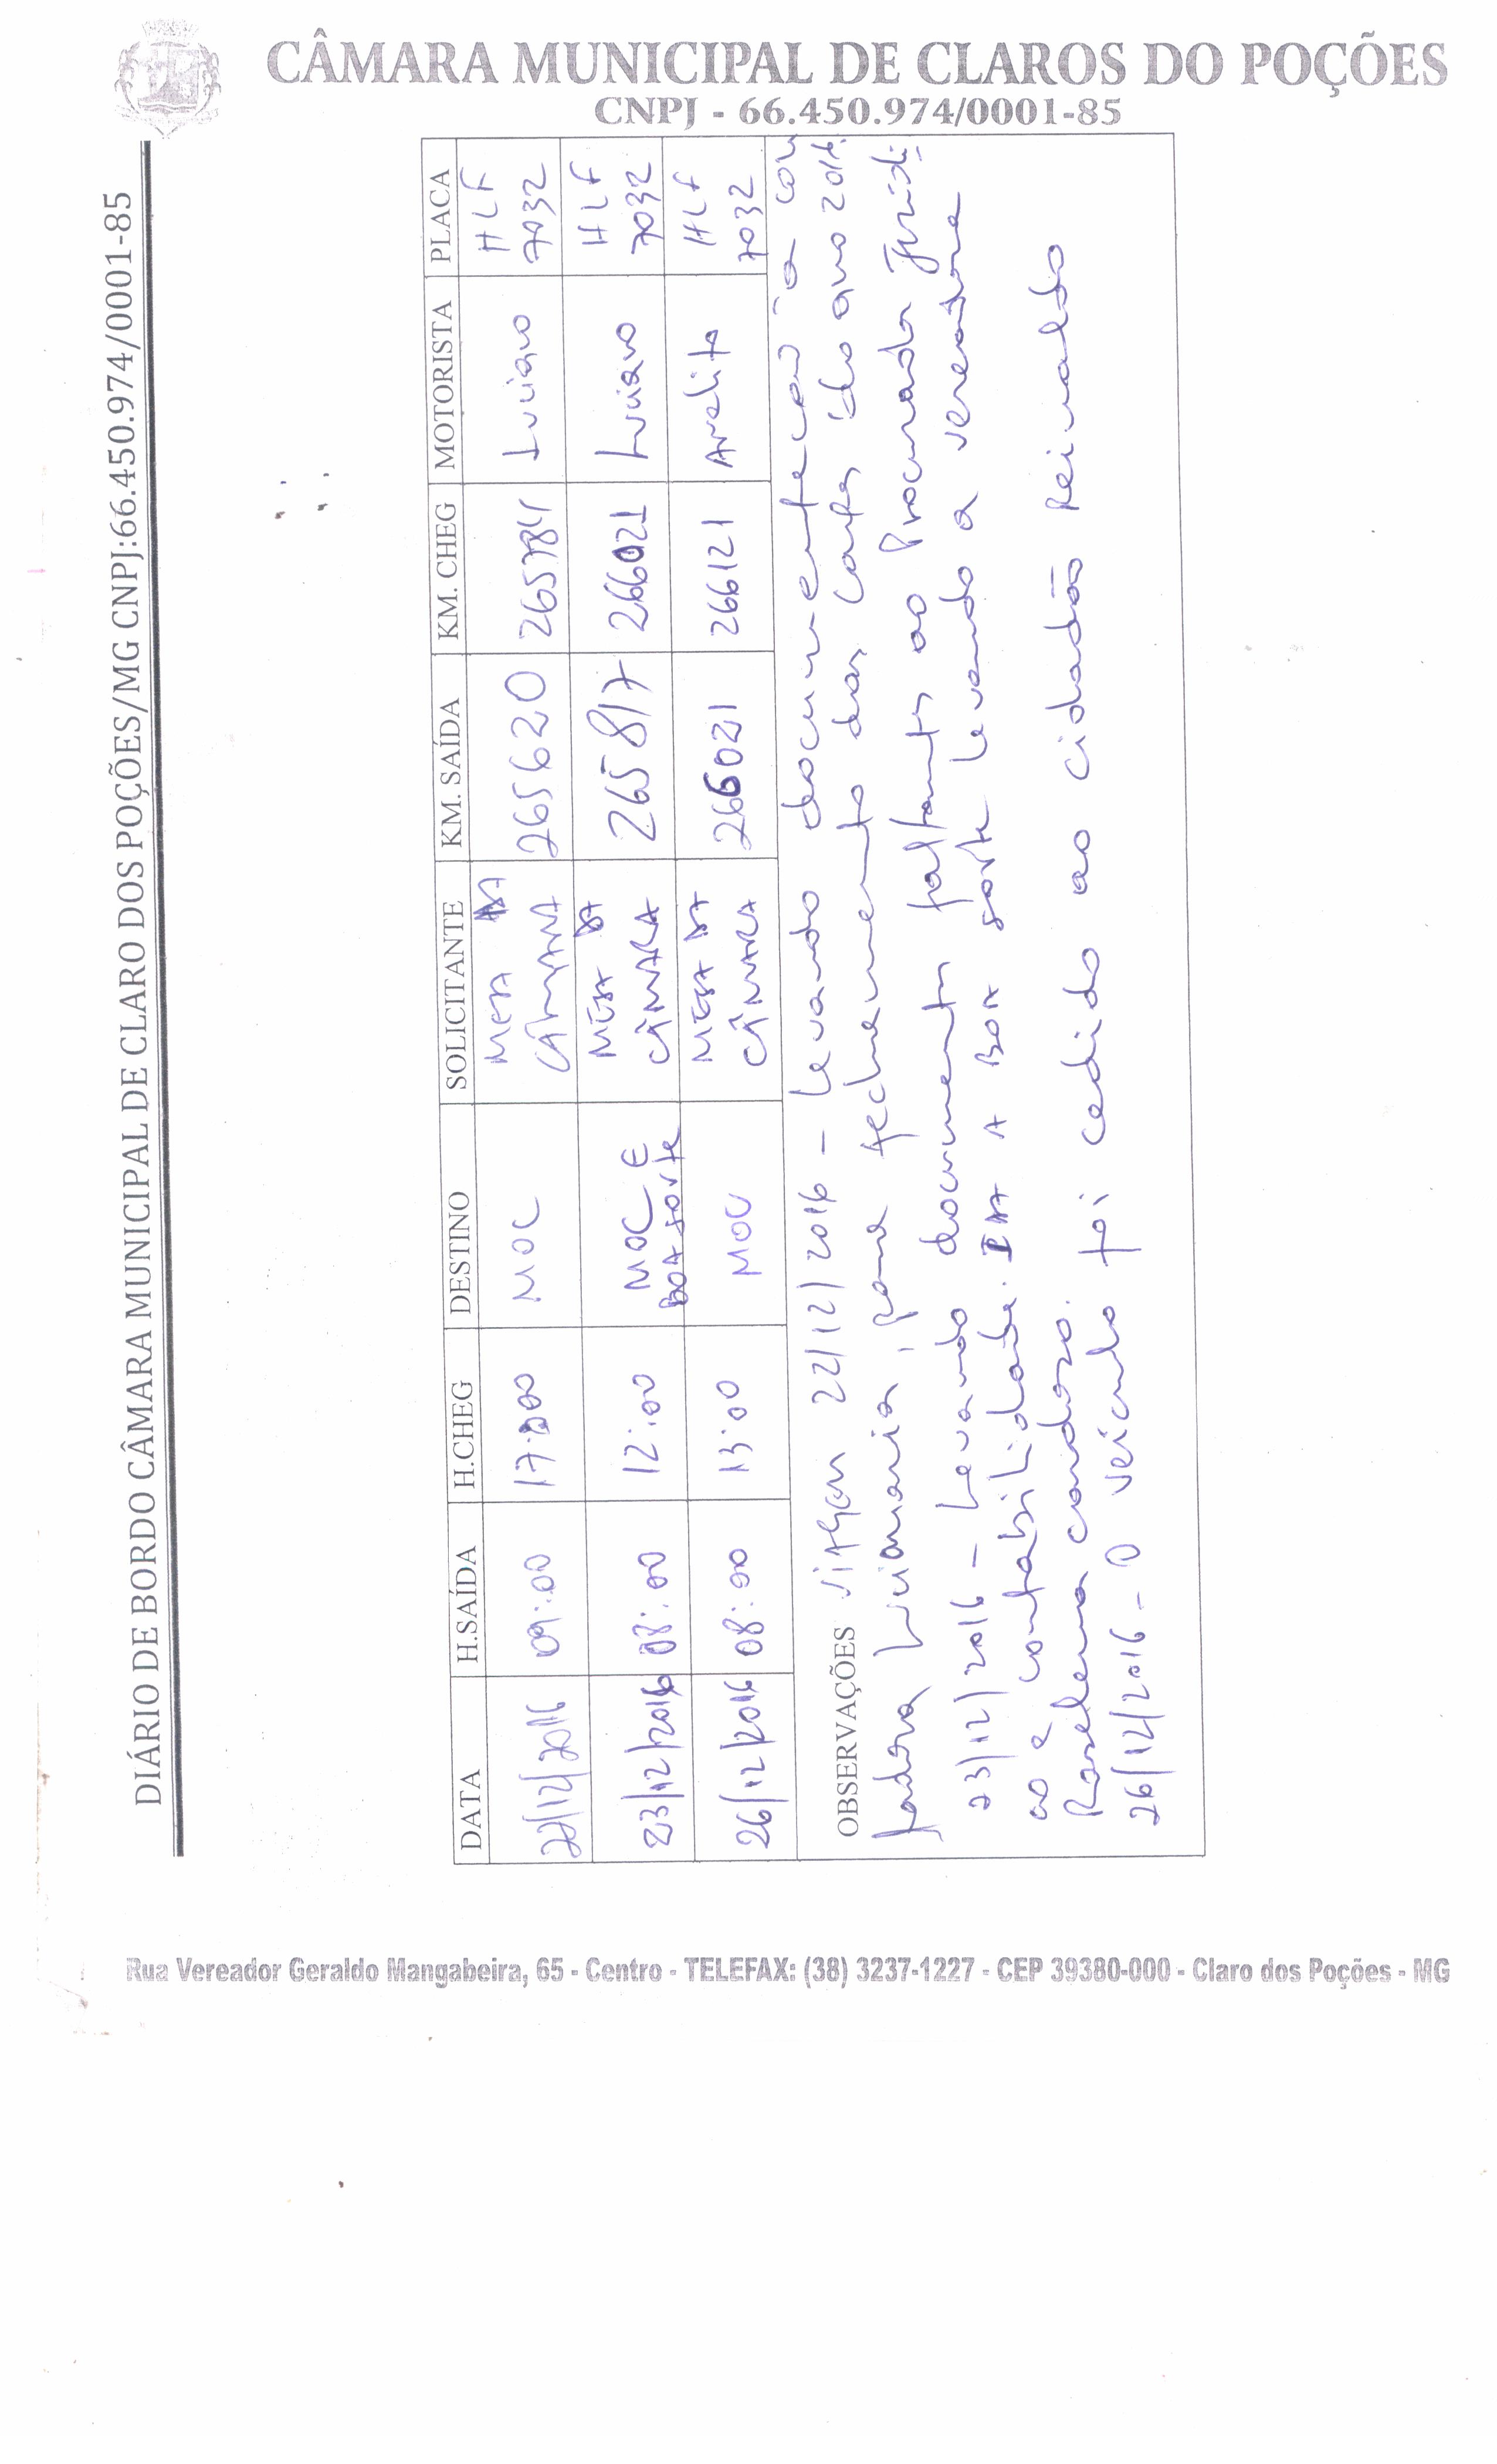 CÂMARA MUNICIPAL DE CLAROS DO POÇÕES
CNPJ - 66.450.974/0001-85
DIÁRIO DE BORDO CÂMARA MUNICIPAL DE CLARO DOS POÇÕES/MG CNPJ:66.450.974/0001-85
DATA H.SAÍDA H.CHEG DESTINO SOLICITANTE KM. SAÍDA KM. CHEG MOTORISTA PLACA
22/12/2016 09:00 17:00 MOC MESA DA CÂMARA 265620 265784 Luciano HLF 7032
23/12/2016 08:00 12:00 MOC E BOA SORTE MESA DA CÂMARA 265817 266021 Luciano HLF 7032
26/12/2016 08:00 13:00 MOC MESA DA CÂMARA 266021 266121 HLF 7032
OBSERVAÇÕES 22/12/2016 - Levando documentação a con
tadora para fechamento das contas do ano 2016.
23/12/2016 - Levando documentos faltantes ao Procurador Jurídi
co e contabilidade. IDA A BOA sorte levando a vereadora
cardozo.
26/12/2016 - O veículo foi cedido ao cidadão Reinaldo
Rua Vereador Geraldo Mangabeira, 65 - Centro - TELEFAX: (38) 3237-1227 - CEP 39380-000 - Claro dos Poções - MG